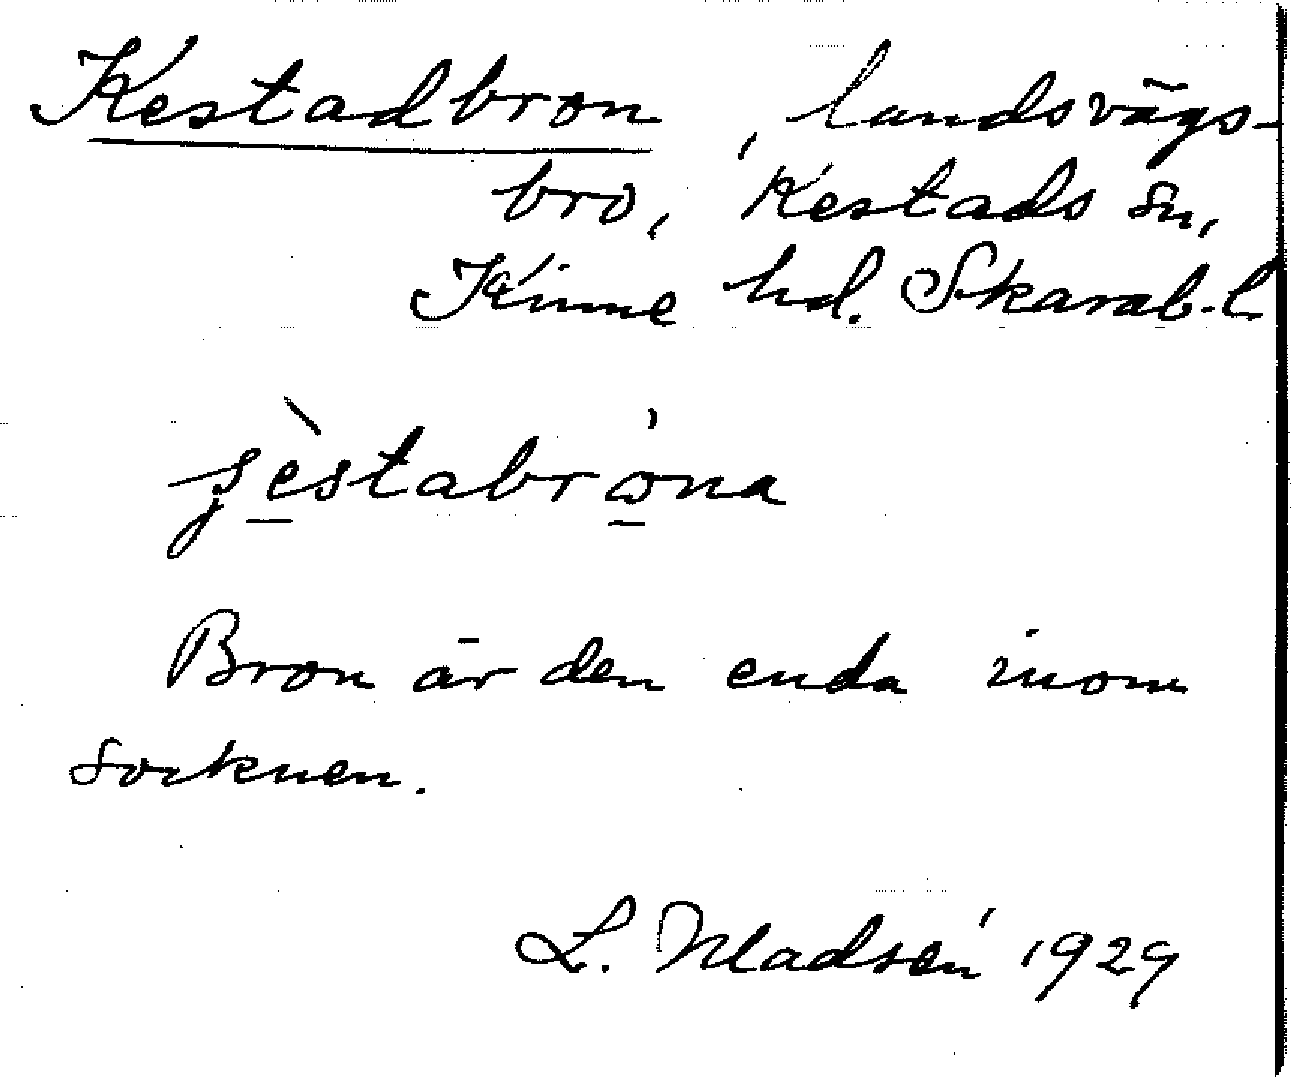 Kestadbron, landsvägs-
bro, Kestads sn,
Kinne hd. Skarab.l
Bron är den enda inom
socknen.
L. Madsén 1929